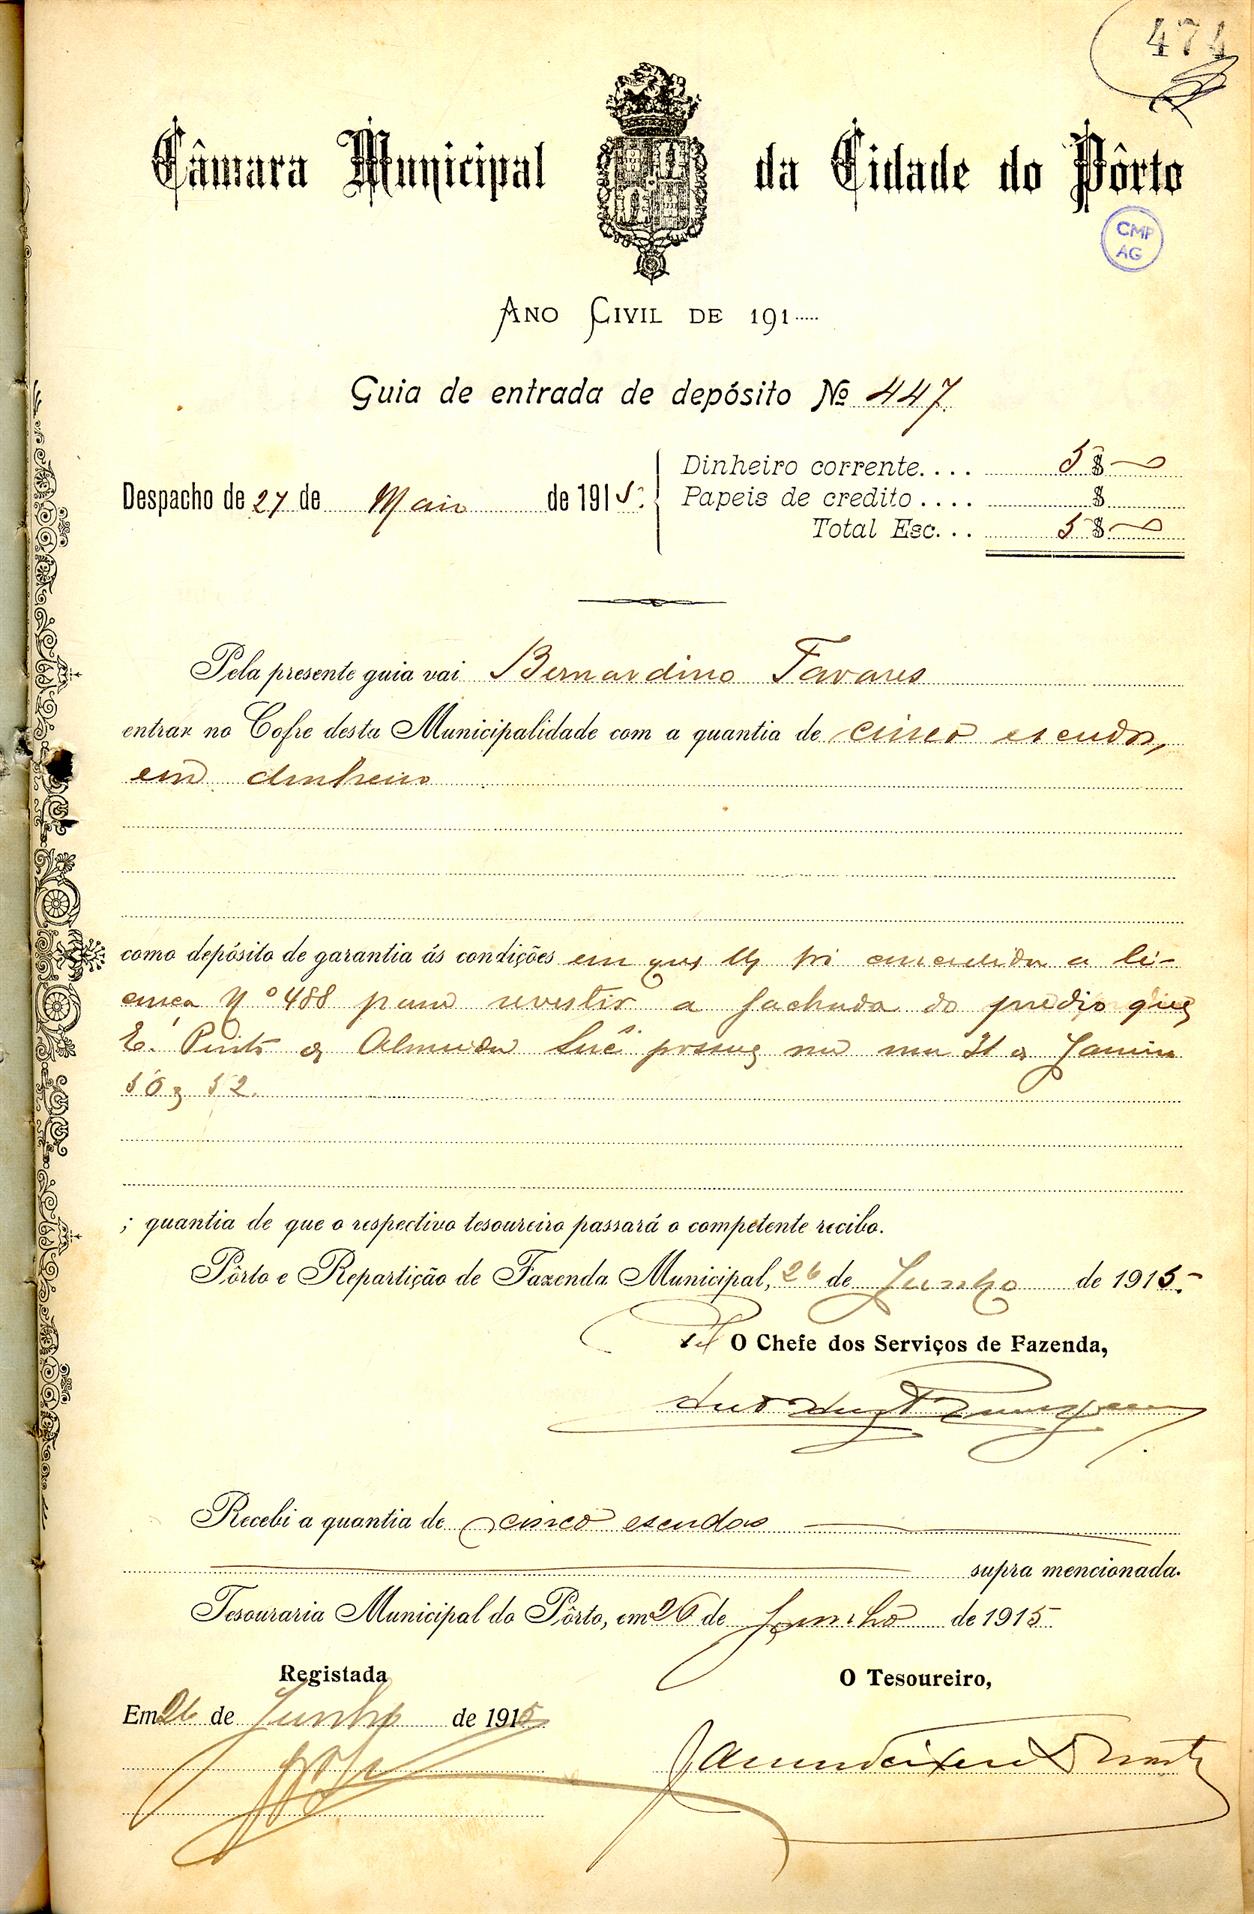 474
Câmara Municipal da Cidade do Pôrto
CMP
AG
ANO CIVIL DE 191.....
Guia de entrada de depósito Nº 447.
Despacho de 27 de Maio de 1915.
Dinheiro corrente.... 5$
Papeis de credito.... $
Total Esc... 5$
Pela presente guia vai Bernardino Tavares
entrar no Cofre desta Municipalidade com a quantia de cinco escudos,
em dinheiro
como depósito de garantia ás condições em que lhe foi concedida a li-
cença Nº 488 para revestir a fachada do predio que
E. Pinto de Almeida possue na rua 31 de Janeiro
50 e 52.
; quantia de que o respectivo tesoureiro passará o competente recibo.
Pôrto e Repartição de Fazenda Municipal, 26 de Junho de 1915.
Pel O Chefe dos Serviços de Fazenda,
Recebi a quantia de cinco escudos
supra mencionada.
Tesouraria Municipal do Pôrto, em 26 de Junho de 1915
Registada
O Tesoureiro,
Em 26 de Junho de 1915